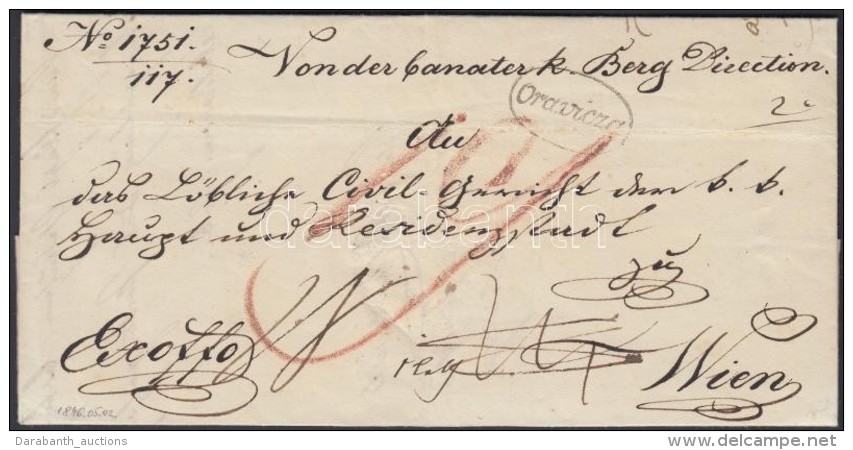 No 1751.
117.
Von der banater k. Berg Direction.
Oravicza
An
das Löbliche Civil-Gericht der k. k.
Haupt und Residenzstadt
zu
Wien
Exoffo
1846.05.02
darabanth
Darabanth_auctions
www.delcampe.net